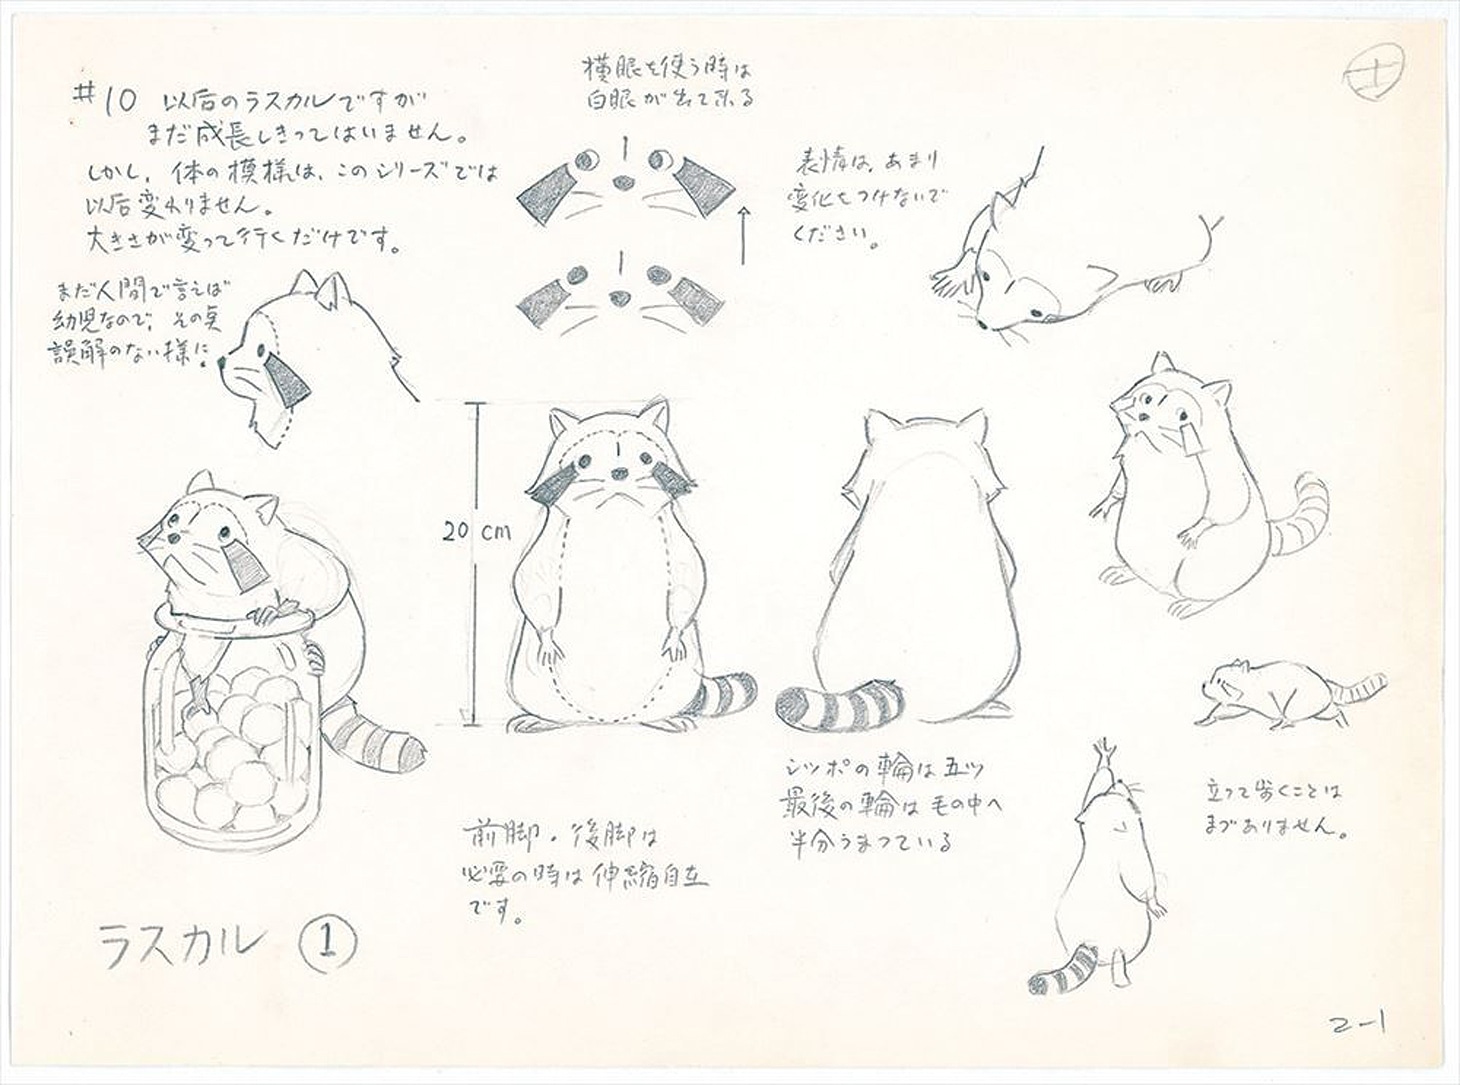 #10 以后のラスカルですが
まだ成長しきってはいません。
しかし、体の模様は、このシリーズでは
以后変わりません。
大きさが変って行くだけです。
まだ人間で言えば
幼児なので、その点
誤解のない様に。
横眼を使う時は
白眼が出て来る
表情は、あまり
変化をつけないで
ください。
20 cm
シッポの輪は五ツ
最後の輪は毛の中へ
半分うまっている
立って歩くことは
まずありません。
前脚・後脚は
必要の時は伸縮自在
です。
ラスカル ①
2-1